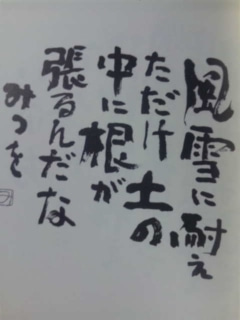 風雪に耐え
ただけ土の
中に根が
張るんだな
みつを